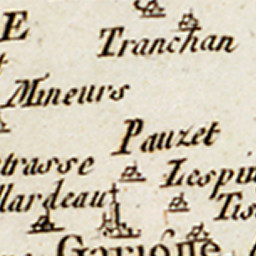 E
Tranchan
Mineurs
Pauzet
trasse Lespin
llardeau Tis
Garigne